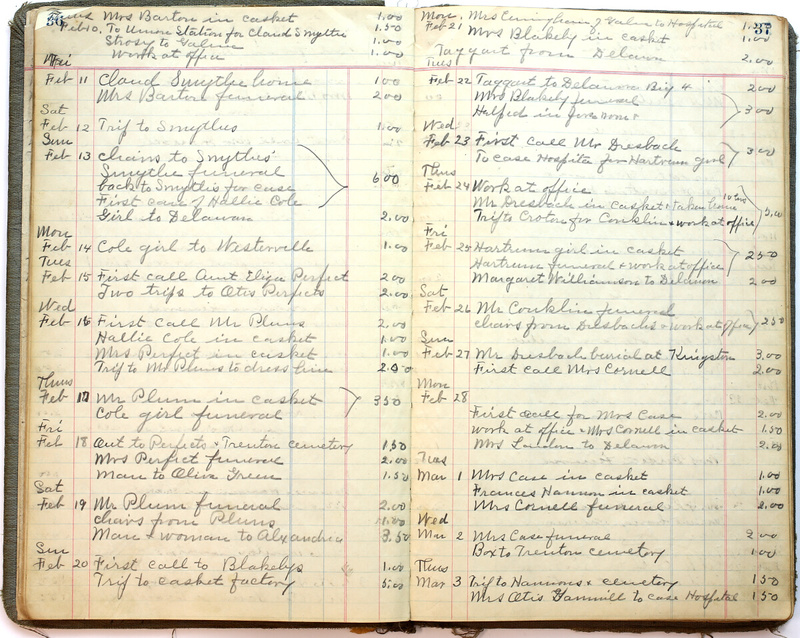 36
Thurs Mrs Barton in casket 1.00
Feb 10, To Union Station for Claud Smythe 1.50
Strosy to Galena 1.00
Work at office 1.00
Fri
Feb 11 Claud Smythe home 1 00
Mrs Barton funeral 2 00
Sat
Feb 12 Trip to Smythes 1.00
Sun
Feb 13 chairs to Smythes
Smythe funeral
back to Smythes for case 6 00
First case of Hallie Cole
Girl to Delaware 2.00
Mon
Feb 14 Cole girl to Westerville 1.00
Tues
Feb 15 First call Aunt Eliza Perfect 2 00
Two trips to Otis Perfects 2.00
Wed
Feb 16 First call Mr Plums 2.00
Hallie Cole in casket 1.00
Mrs Perfect in casket 1.00
Trip to Mr Plums to dress him 2.00
Thurs
Feb 17 Mr Plum in casket 3 50
Cole girl funeral
Fri
Feb 18 Out to Perfects & Trenton cemetery 1.50
Mrs Perfect funeral 2.00
Man to Olive Green 1.50
Sat
Feb 19 Mr Plum funeral 2.00
chairs from Plums 1.00
Man & woman to Alexandria 3.50
Sun
Feb 20 First call to Blakelys 1.00
Trip to casket factory 5.00
37
Mon. Mrs Cunningham of Galena to Hospital
Feb 21 Mrs Blakely in casket 1.00
Taggart from Delawn 2.00
Tues
Feb 22 Taggart to Delawna Big 4 2 00
Mrs Blakely funeral
Helped in 3 00
Wed
Feb 23 First call Mr Dresbach
To case Hospital for Hartrum girl 3 00
Thurs
Feb 24 Work at office
Mr Dresbach in casket & taken home
Trip to Croton for Conklin & work at office 5.00
Fri
Feb 25 Hartrum girl in casket
Hartrum funeral & work at office 2 50
Margaret Williamson to Delawn 2 00
Sat
Feb 26 Mr Conklin funeral
chairs from Dresbachs & work at office 2 50
Sun
Feb 27 Mr Dresbach burial at Kingston 3.00
First call Mrs Cornell 2.00
Mon
Feb 28
First call for Mrs Case 2.00
work at office & Mrs Cornell in casket 1.50
Mrs Landen to Delawn 2.00
Tues
Mar 1 Mrs Case in casket 1.00
Frances Hannon in casket 1.00
Mrs Cornell funeral 2.00
Wed
Mar 2 Mrs Case funeral 2 00
Box to Trenton cemetery 1.00
Thurs
Mar 3 Trip to Hannons & cemetery 1 50
Mrs Otis Gammill to case Hospital 1 50